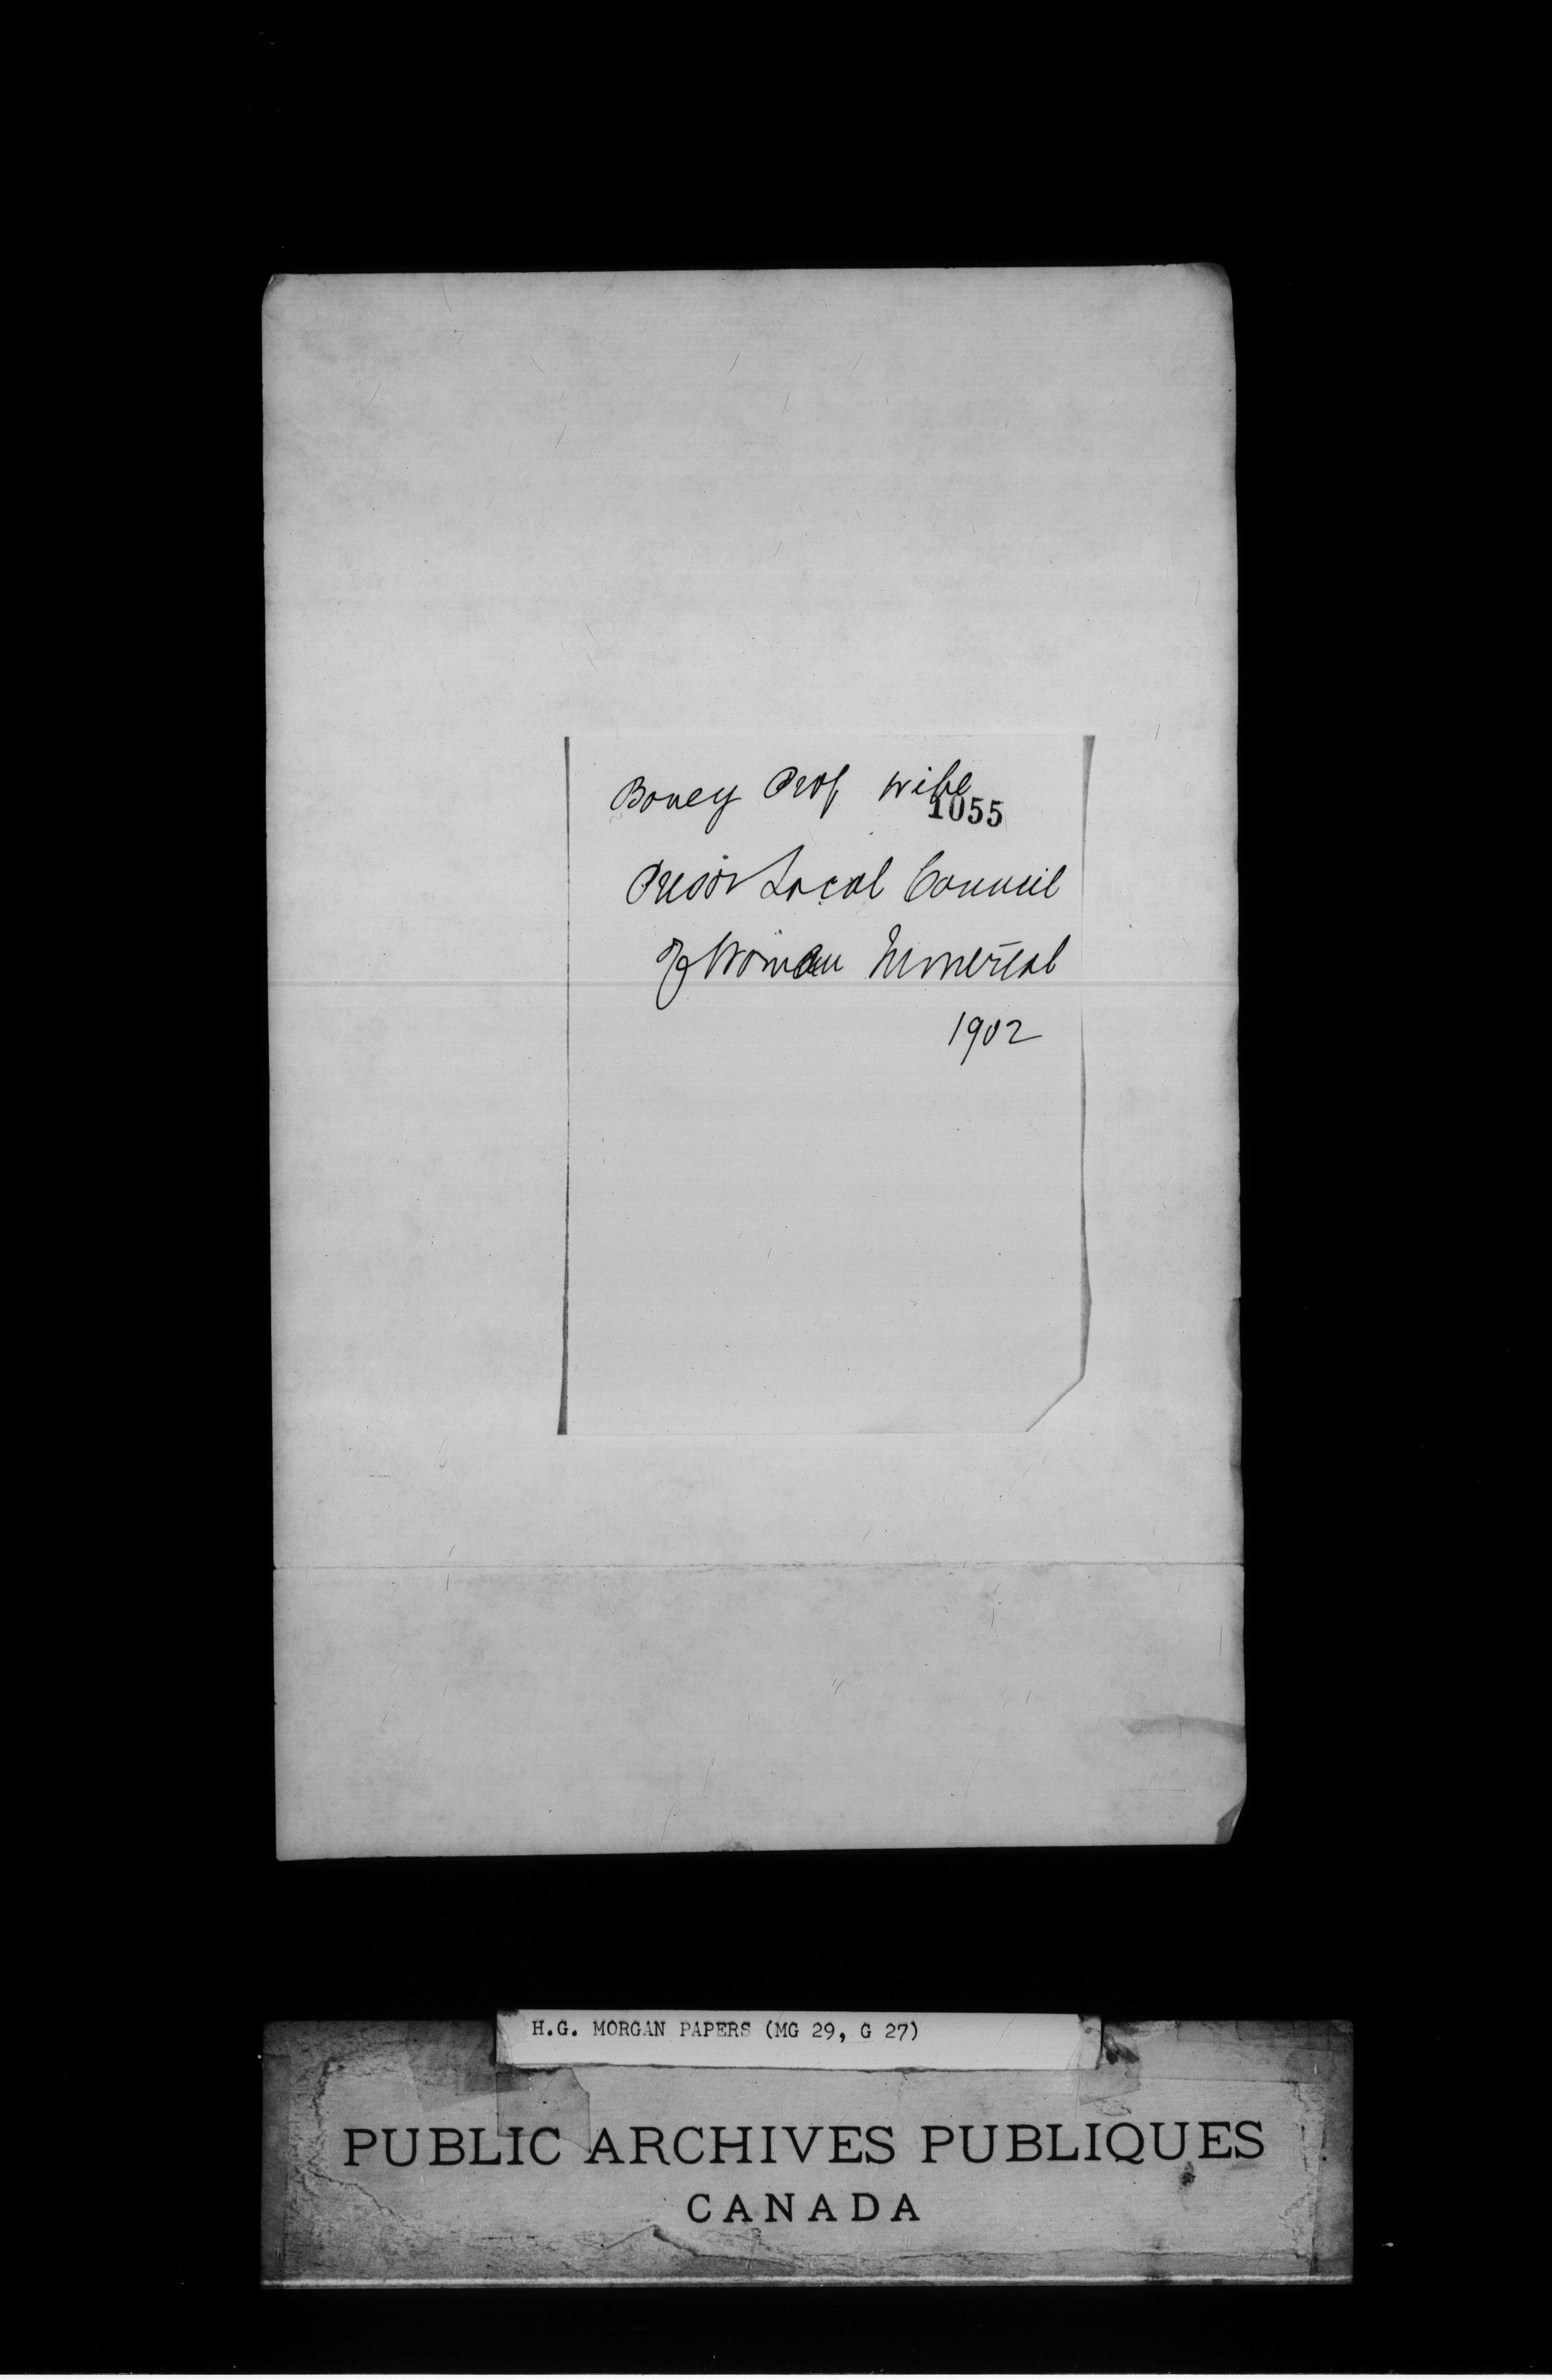 Bovey Prof wife
1055
Presdt Local Council
of Woman Montreal
1902
H.G. MORGAN PAPERS (MG 29, G 27)
PUBLIC ARCHIVES PUBLIQUES
CANADA